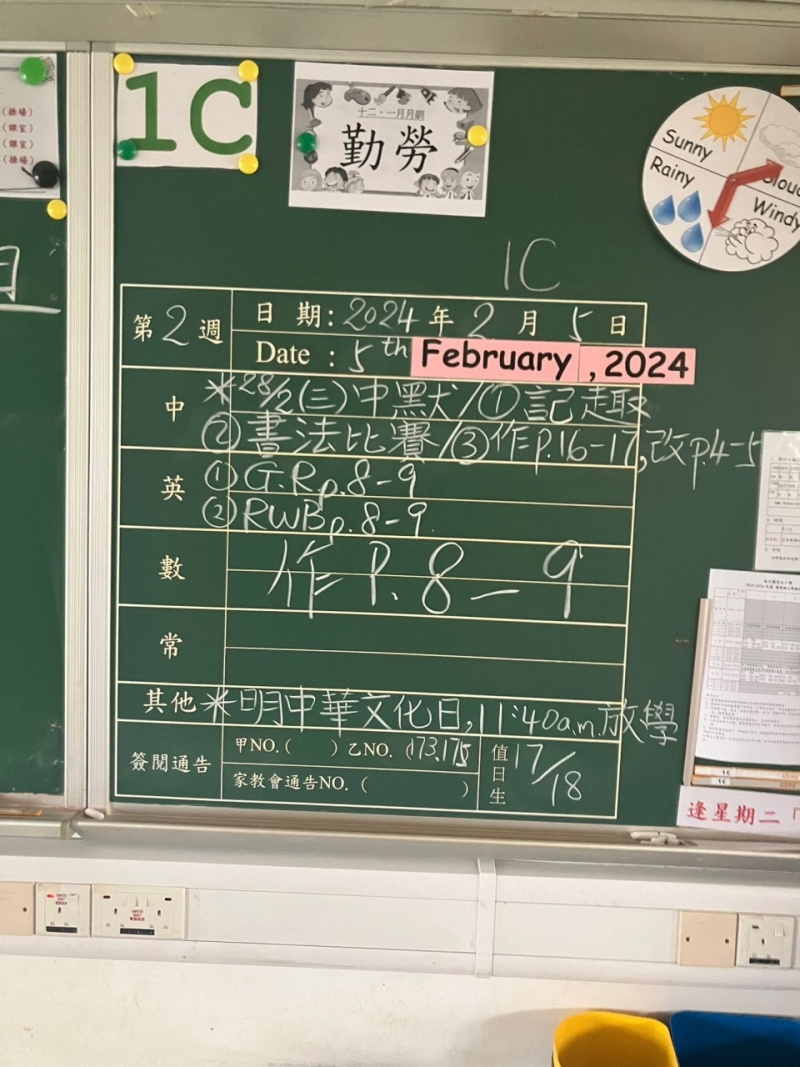 (操場)
(課室)
(課室)
(操場)
日
1C
十二、一月月訓
勤勞
Sunny
Rainy
Cloud
Windy
1C
第2週
日 期: 2024 年 2 月 5 日
Date : 5th February , 2024
中
*28/2(三)中默犬/①記趣
②書法比賽/③作p.16-17,改p.4-5
英
①G.R p.8-9
②RWB p.8-9.
數
作 P. 8-9
常
其他 *明中華文化日,11:40a.m.放學
簽閱通告
甲NO.( ) 乙NO. (173,175
家教會通告NO. ( )
值日生 17/18
逢星期二「